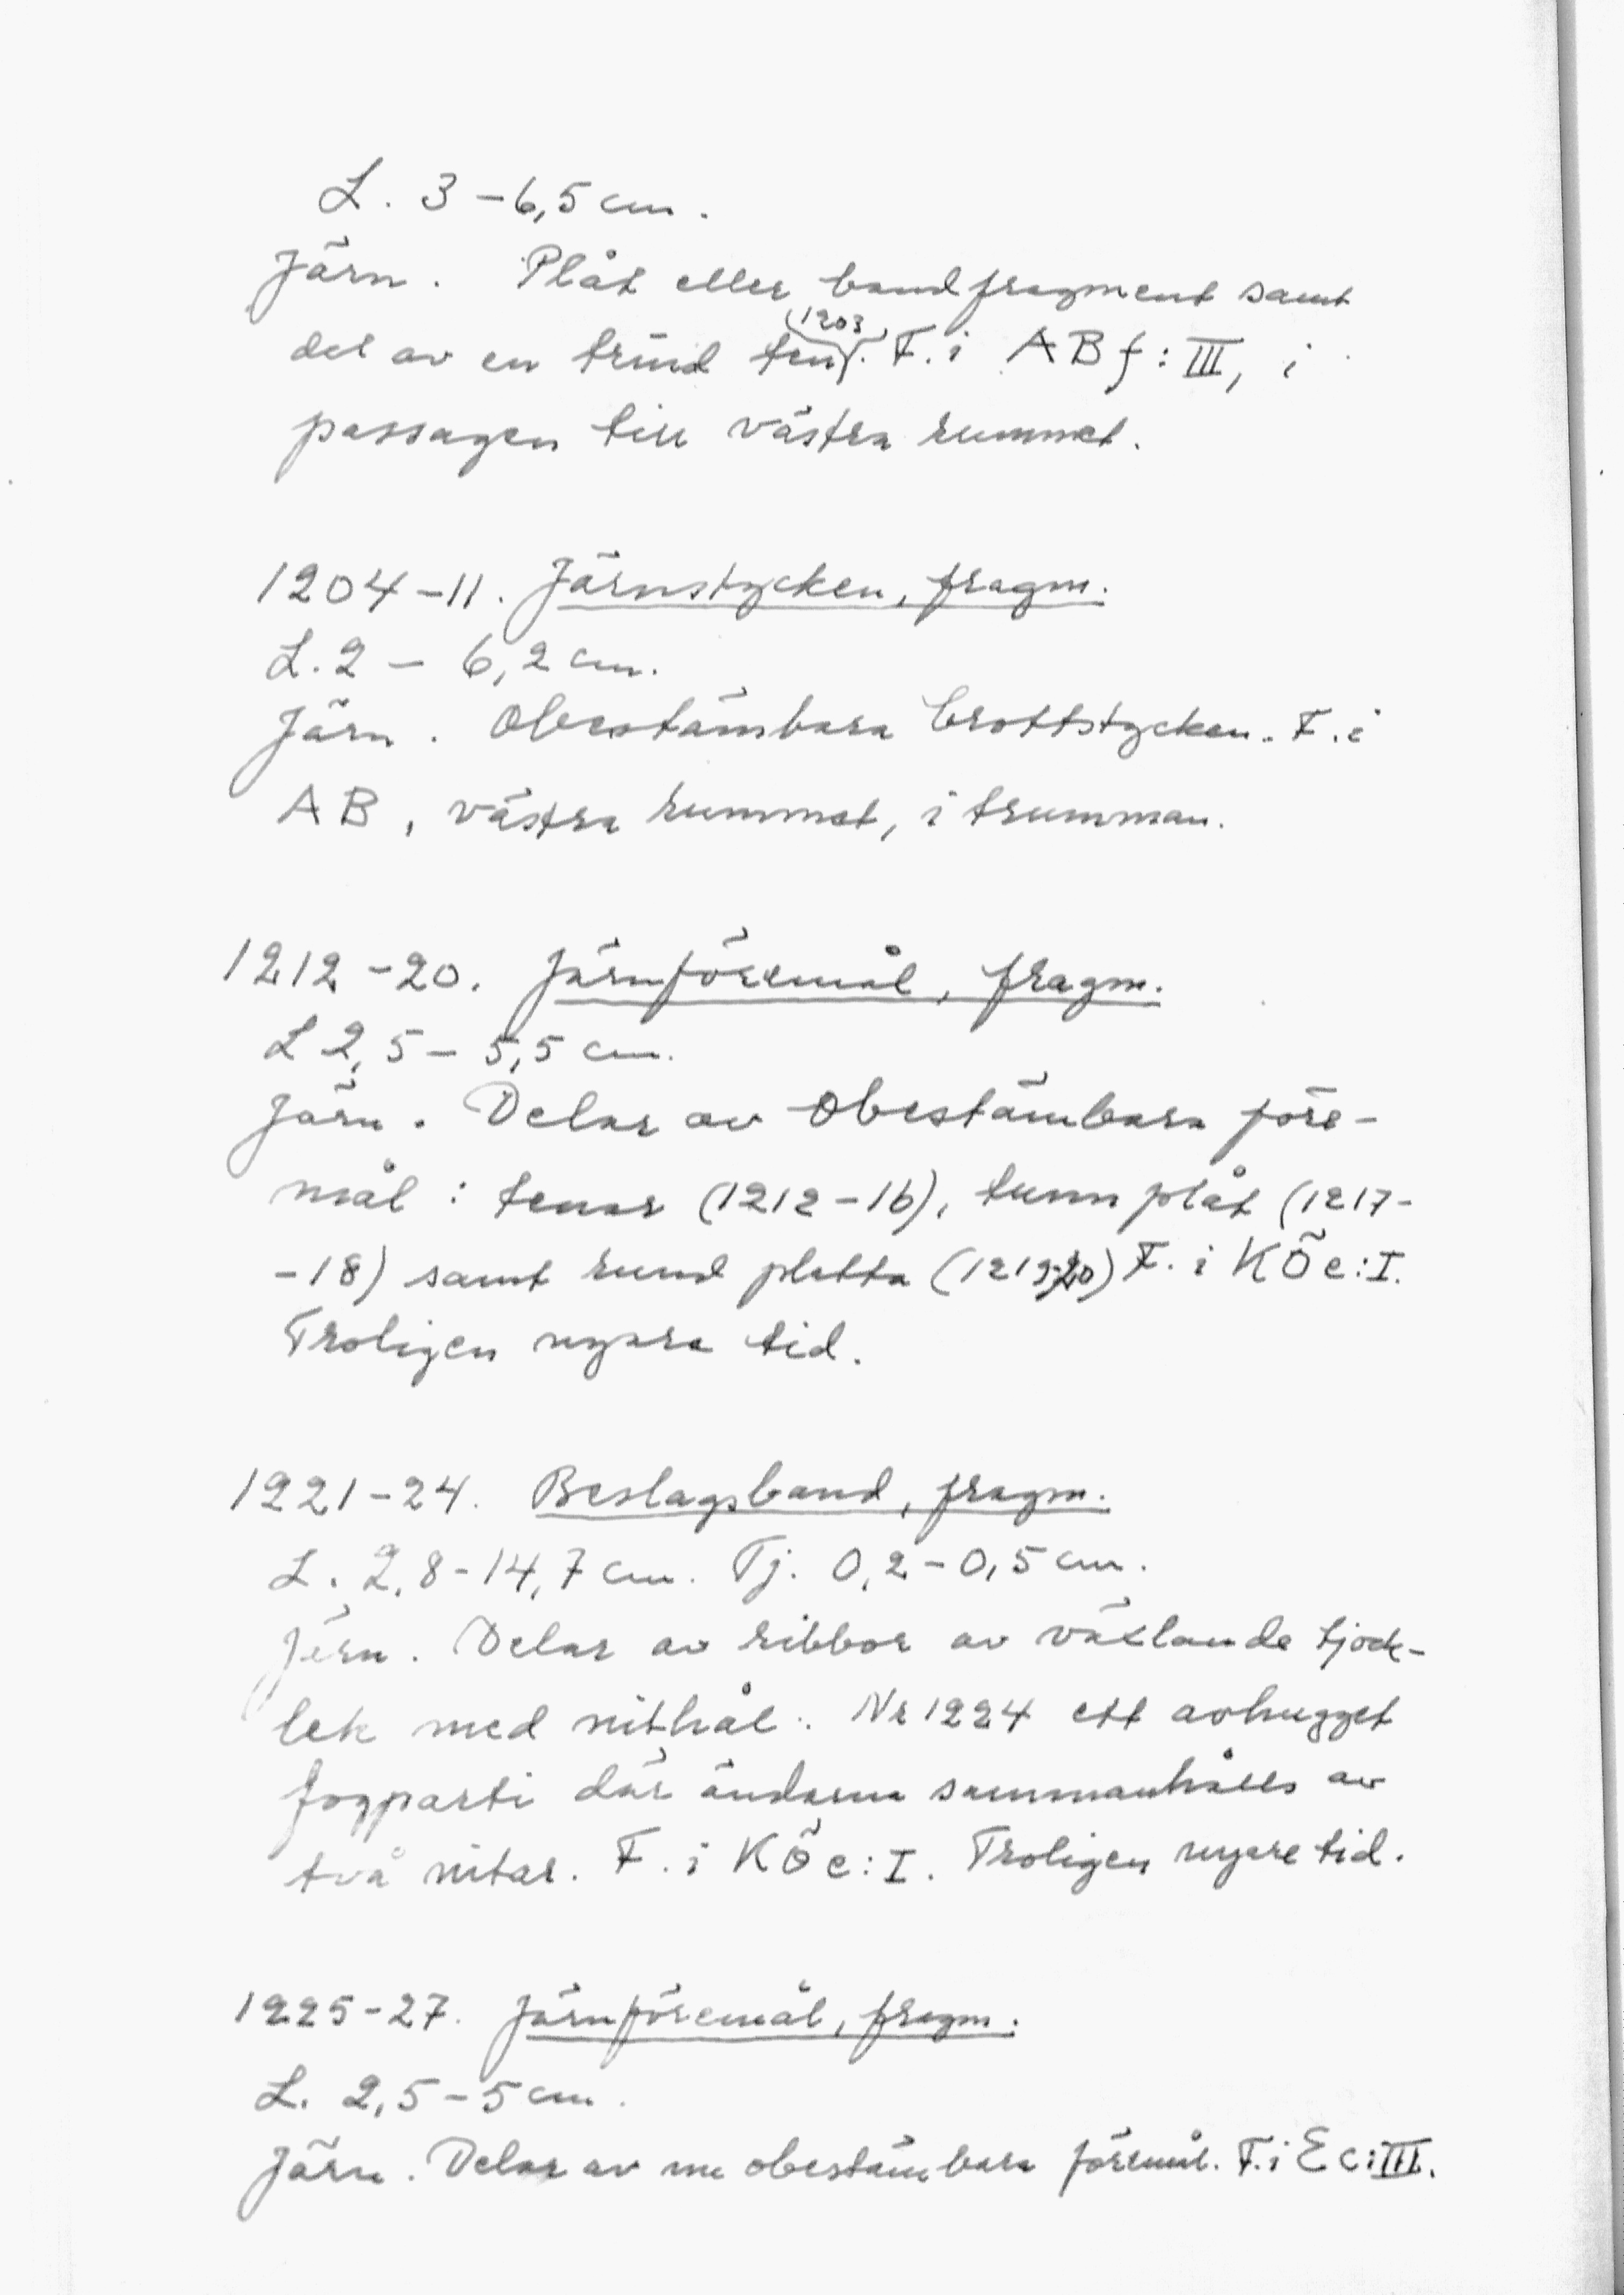 L. 3-6,5 cm.
Järn. Plåt eller bandfragment samt
del av en trind ten (1203). F. i ABf:III, i
passagen till västra rummet.
1204-11. Järnstycken, fragm.
L. 2 - 6,2 cm.
Järn. Obestämbara brottstycken. F. i
AB, västra rummet, i trumman.
1212-20. Järnföremål, fragm.
L 2,5 - 5,5 cm.
Järn. Delar av obestämbara före-
mål: tenar (1212-16), tunn plåt (1217-
-18) samt rund platta (1219-20) F. i KÖc:I.
Troligen nyare tid.
1221-24. Beslagsband, fragm.
L. 2,8-14,7 cm. Tj. 0,2-0,5 cm.
Järn. Delar av ribbor av växlande tjock-
lek med nithål. Nr 1224 ett avhugget
fogparti där ändarna sammanhålls av
två nitar. F. i KÖc:I. Troligen nyare tid.
1225-27. Järnföremål, fragm.
L. 2,5-5 cm.
Järn. Delar av nu obestämbara föremål. F. i Ec:III.